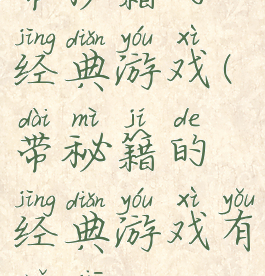 jīng diǎn yóu xì
经典游戏(
dài mì jí de
带秘籍的
jīng diǎn yóu xì yǒu
经典游戏有